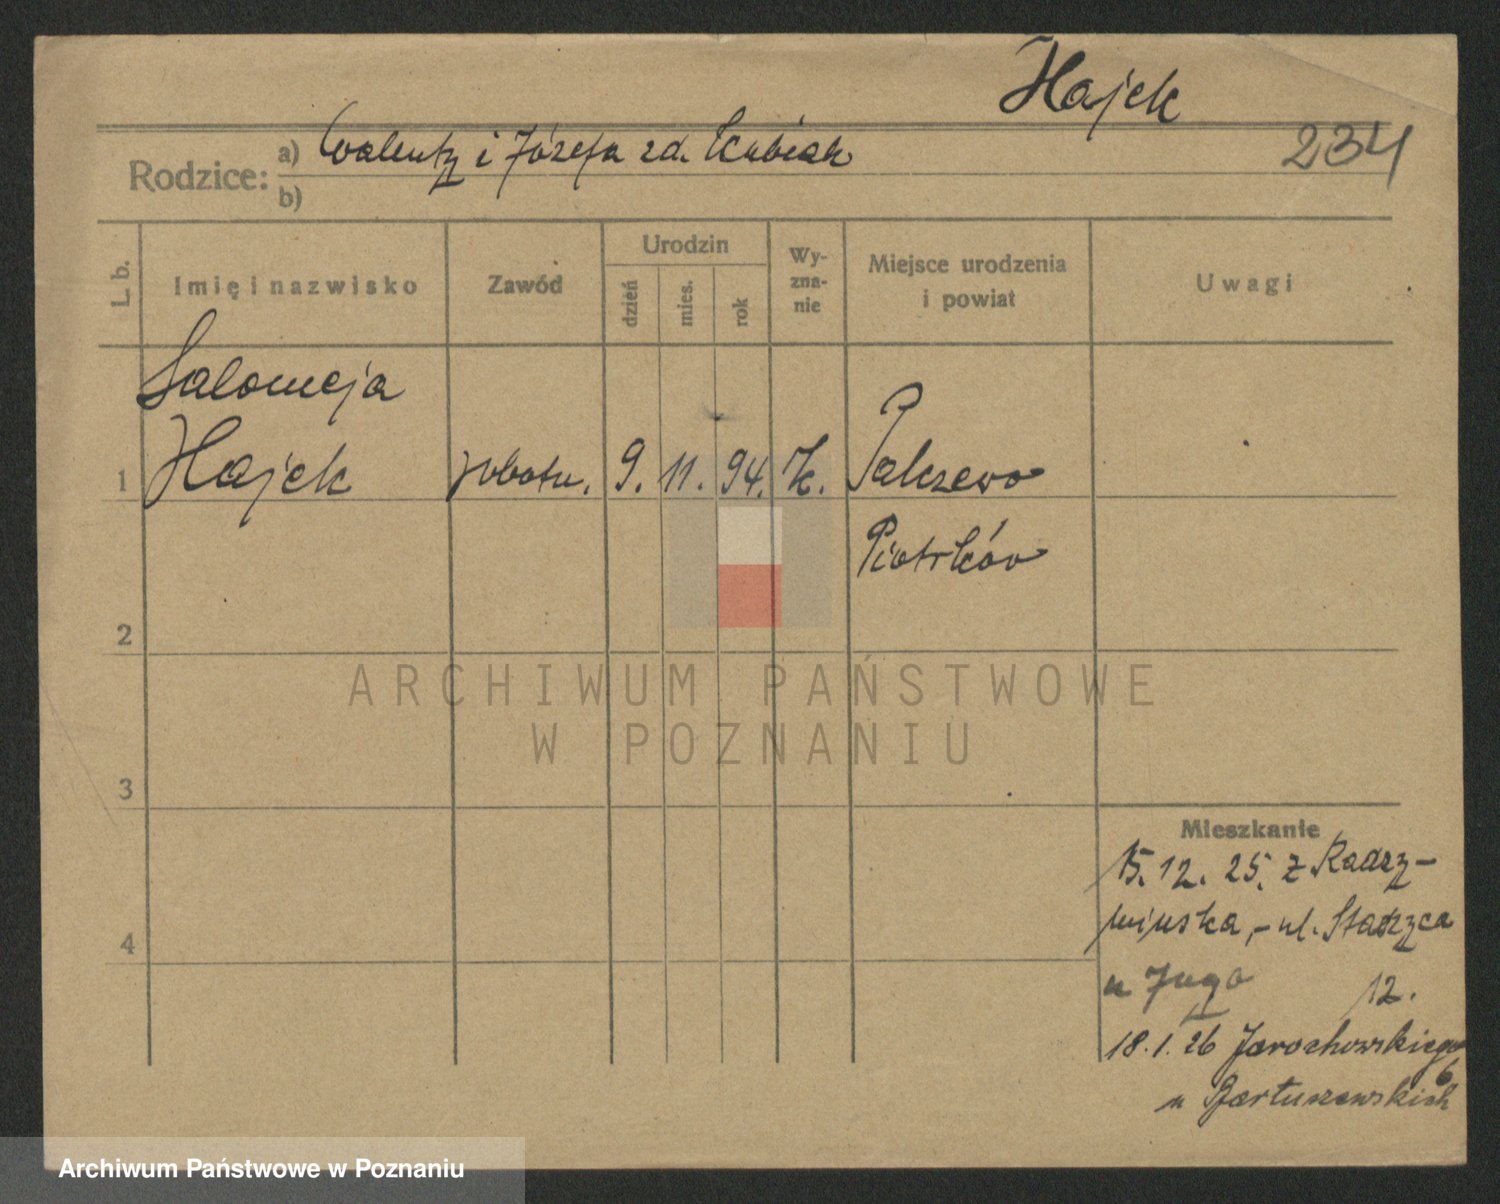 Hajek
234
Rodzice:
a) Walenty i Józefa zd. Kubiak
b)
L. b.
Imię i nazwisko
Zawód
Urodzin
dzień
mies.
rok
Wy-
zna-
nie
Miejsce urodzenia
i powiat
Uwagi
Salomeja
1 Hajek robotn. 9. 11. 94. K. Palczewo
Piotrków
2
3
4
Mieszkanie
15. 12. 25. z Radzy-
mińska, - ul. Starzca
u Jugo 12.
18. 1. 26 Jarochowskiego
6
u Bartuszewskich
ARCHIWUM PAŃSTWOWE
W POZNANIU
Archiwum Państwowe w Poznaniu